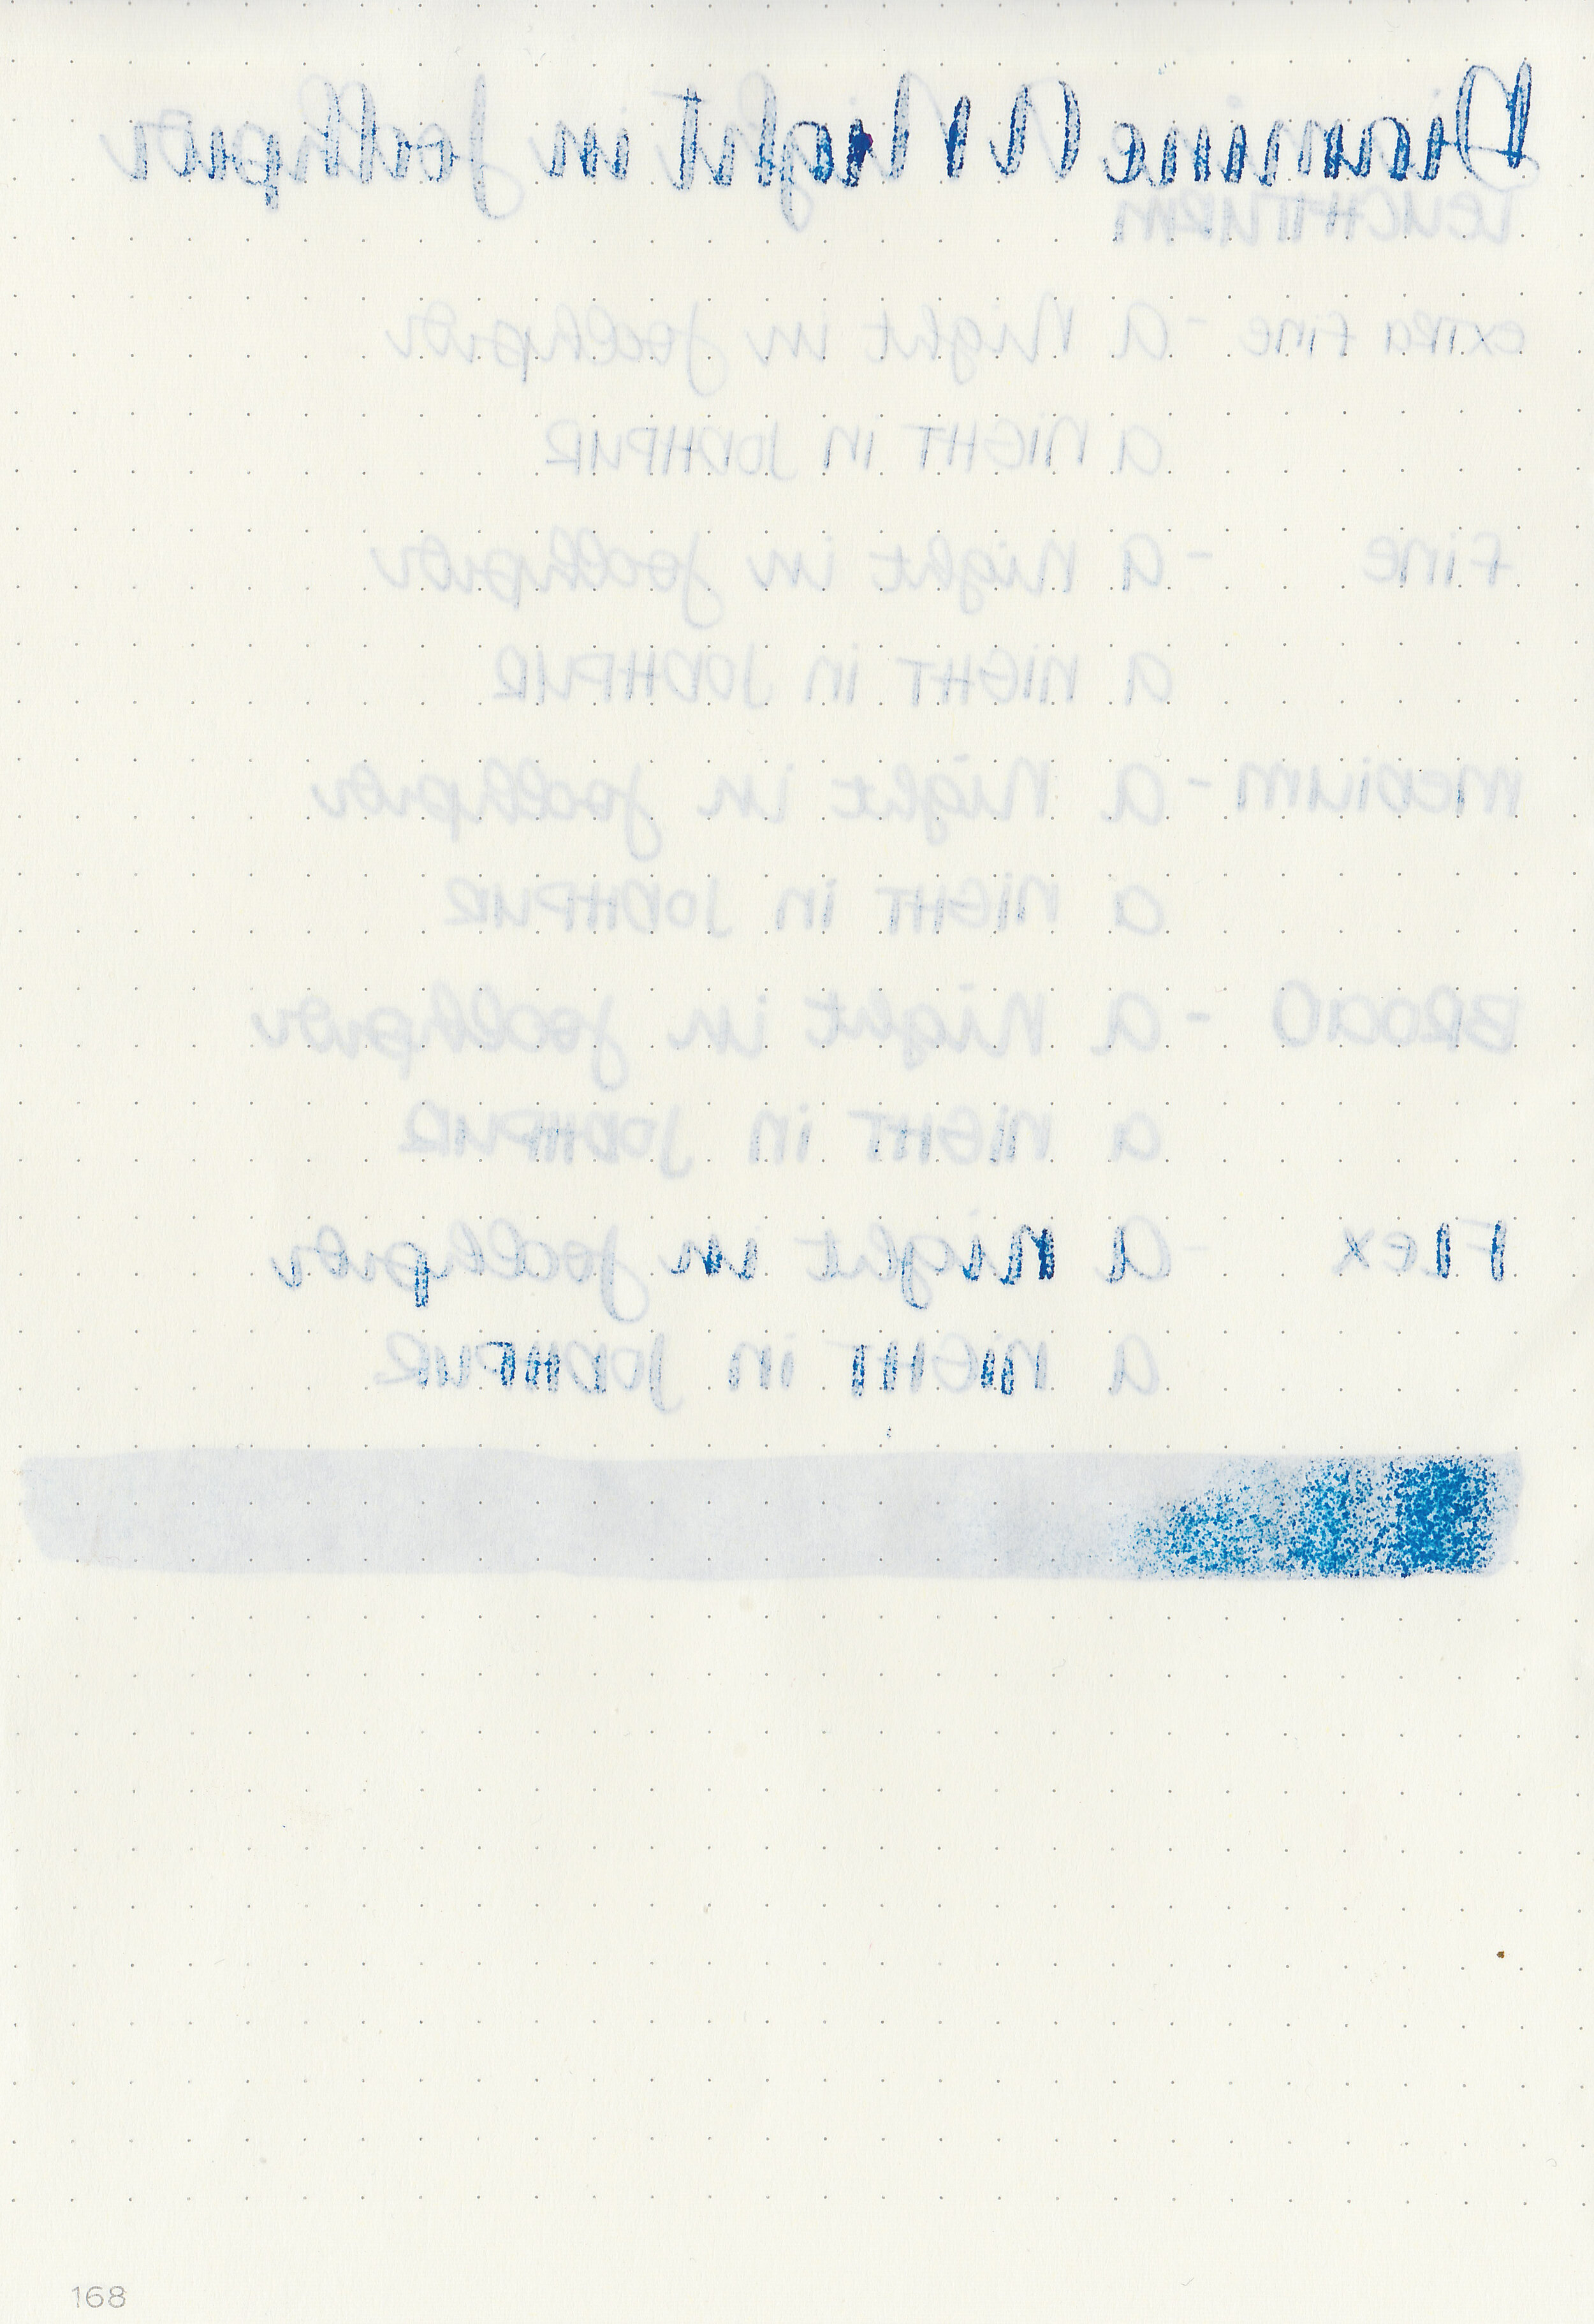 Diamine A Night in Jodhpur
LEUCHTTURM
extra fine - a night in jodhpur
a NIGHT in JODHPUR
fine - a night in jodhpur
a NIGHT in JODHPUR
meDium - a night in jodhpur
a NIGHT in JODHPUR
BROaD - a night in jodhpur
a NIGHT in JODHPUR
Flex - a night in jodhpur
a NIGHT in JODHPUR
168